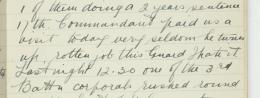 1 of them doing a 2 years sentence
1) the Commandant paid us a
visit today very seldom he turns
up, rotten job this Guard that is
Last night 12.30 one of the 3rd
Battn corporals rushed round